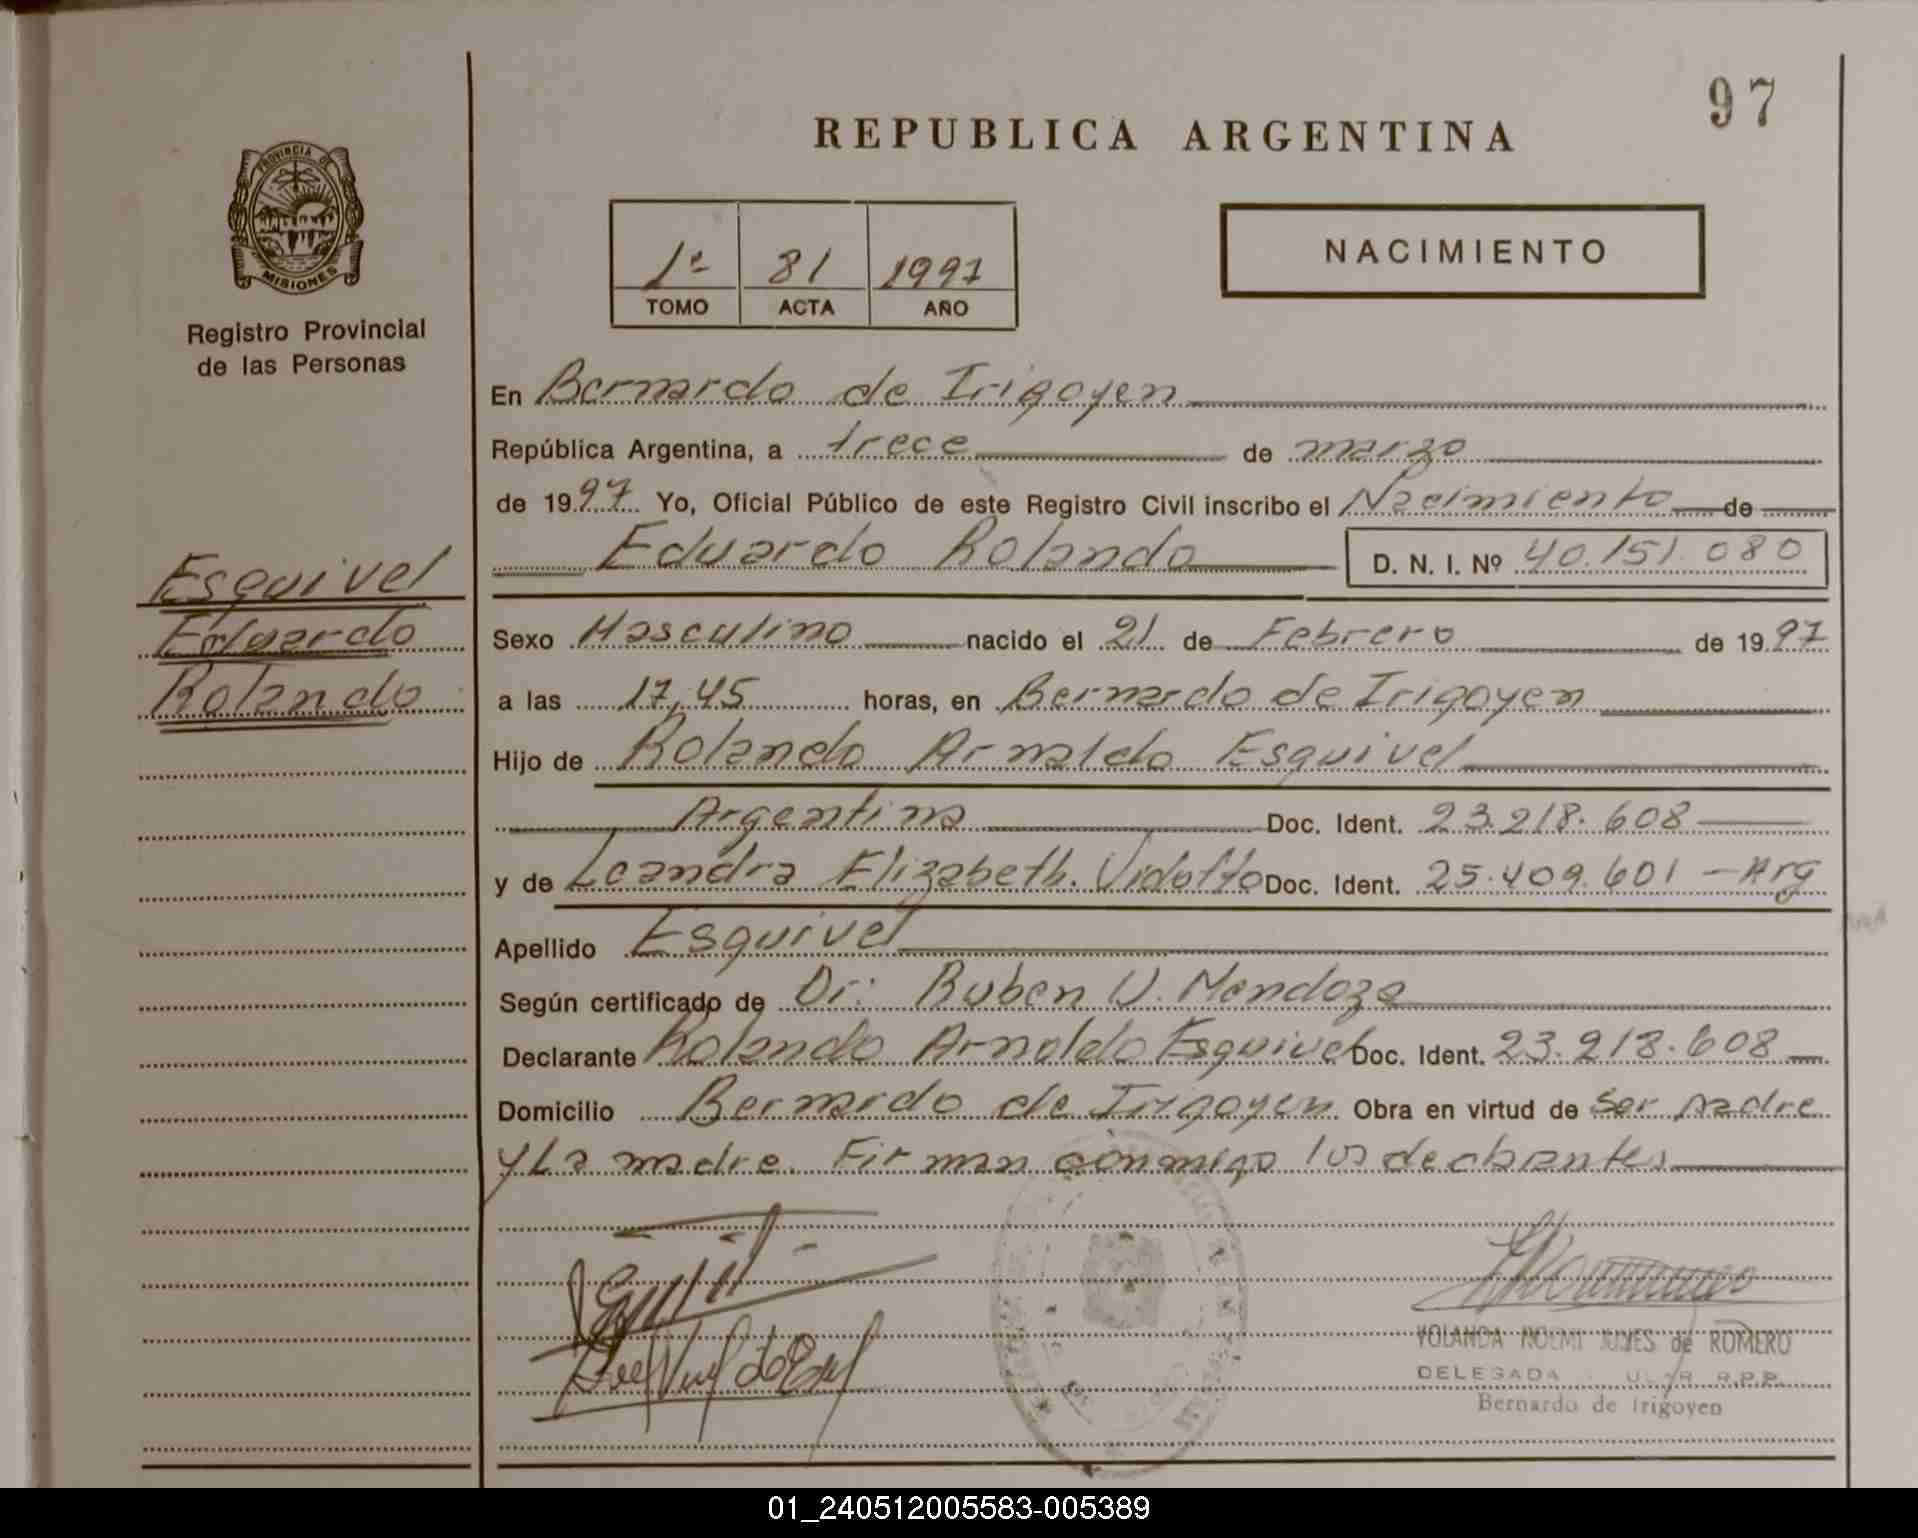 97
REPUBLICA ARGENTINA
PROVINCIA DE
MISIONES
Registro Provincial
de las Personas
1º 81 1997
TOMO ACTA AÑO
NACIMIENTO
En Bernardo de Irigoyen
República Argentina, a trece de marzo
de 1997 Yo, Oficial Público de este Registro Civil inscribo el Nacimiento de
Eduardo Rolando D. N. I. Nº 40.151.080
Esquivel
Eduardo
Rolando
Sexo Masculino nacido el 21 de Febrero de 1997
a las 17,45 horas, en Bernardo de Irigoyen
Hijo de Rolando Arnaldo Esquivel
Argentina Doc. Ident. 23.218.608
y de Leandra Elizabeth. Vidotto Doc. Ident. 25.409.601 - Arg
Apellido Esquivel
Según certificado de Dr: Ruben U. Mendoza
Declarante Rolando Arnoldo Esquivel Doc. Ident. 23.218.608
Domicilio Bernardo de Irigoyen Obra en virtud de ser padre
y La madre. Firman conmigo los declarantes
YOLANDA NOEMI de ROMERO
DELEGADA R.P.P.
Bernardo de Irigoyen
01_240512005583-005389